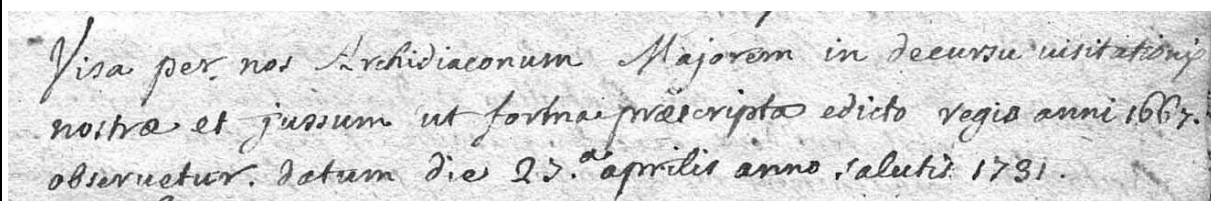 Visa per nos Archidiaconum Majorem in decursu visitationis
nostræ et jussum ut forma præscripta edicto regio anni 1667.
observetur. datum die 27.a aprilis anno salutis 1731.